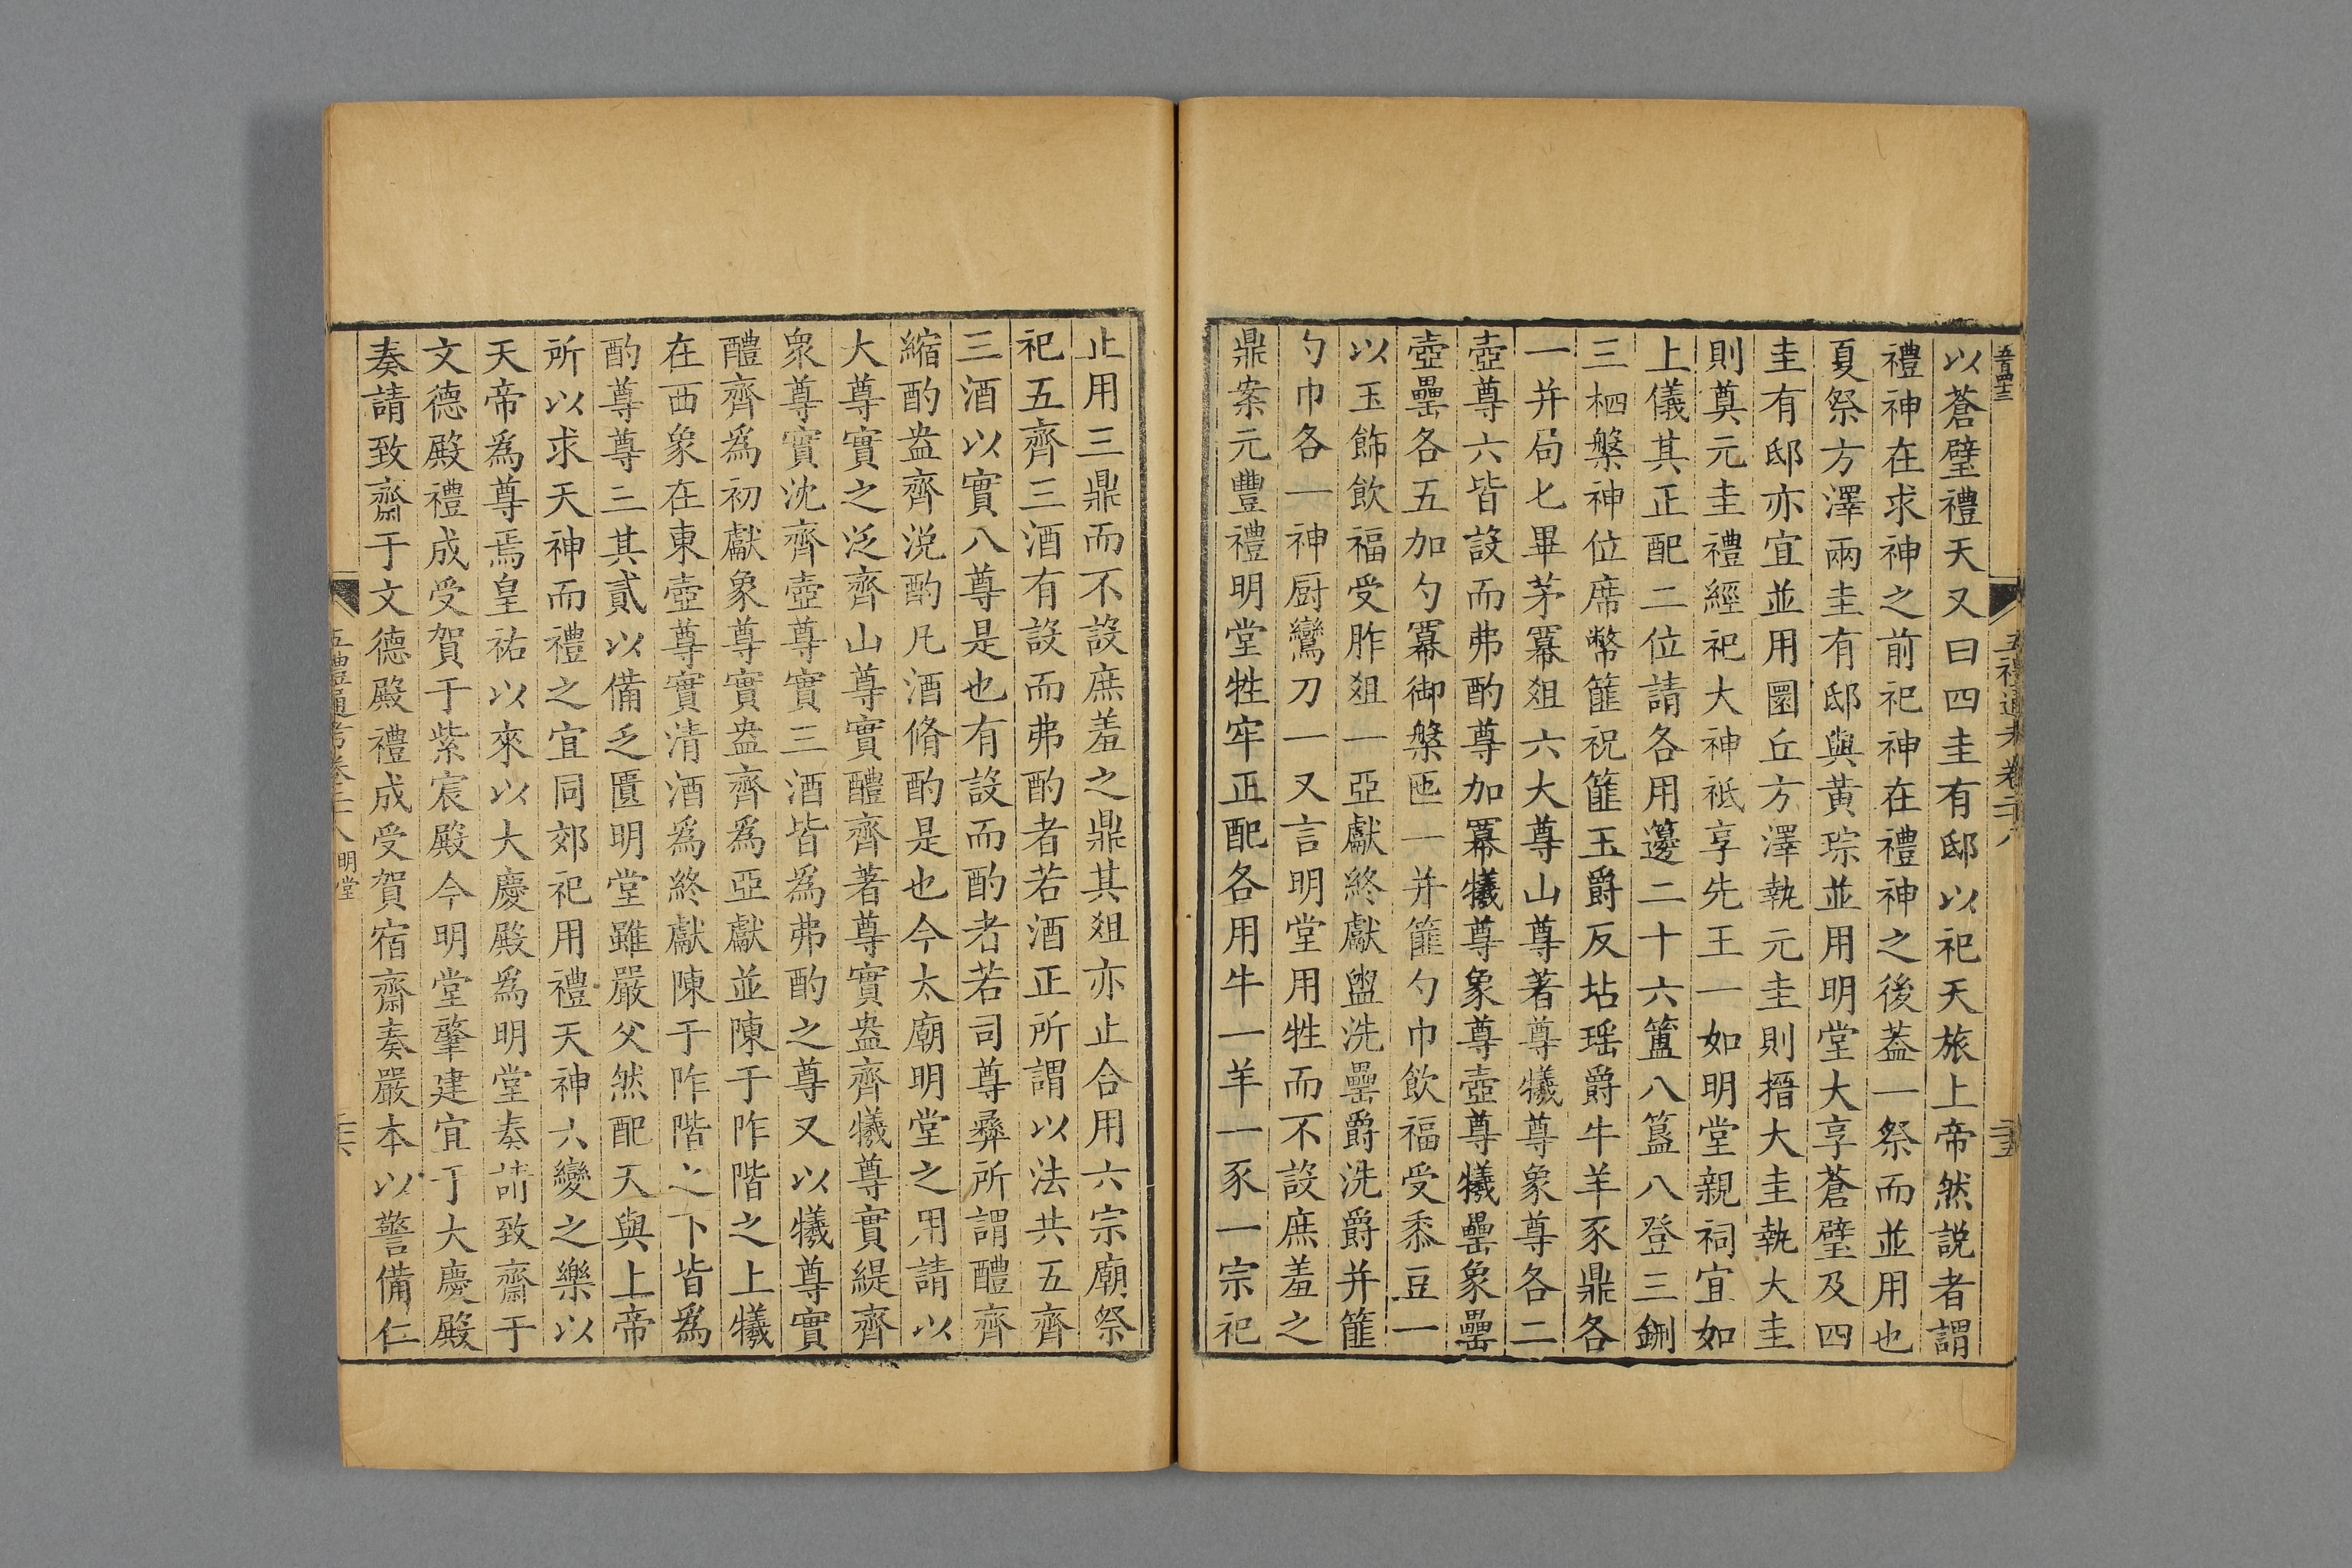 以蒼璧禮天又曰四圭有邸以祀天旅上帝然説者謂
禮神在求神之前祀神在禮神之後葢一祭而並用也
夏祭方澤兩圭有邸與黃琮並用明堂大享蒼璧及四
圭有邸亦宜並用圜丘方澤執元圭則搢大圭執大圭
則奠元圭禮經祀大神祇享先王一如明堂親祠宜如
上儀其正配二位請各用籩二十六簠八簋八登三鉶
三柶槃神位席幣篚祝篚玉爵反坫瑶爵牛羊豕鼎各
一并扃匕畢茅冪俎六大尊山尊著尊犧尊象尊各二
壺尊六皆設而弗酌尊加冪犧尊象尊壺尊犧罍象罍
壺罍各五加勺冪御槃匜一并篚勺巾飲福受黍豆一
以玉飾飲福受胙俎一亞獻終獻盥洗罍爵洗爵并篚
勺巾各一神厨鸞刀一又言明堂用牲而不設庶羞之
鼎案元豐禮明堂牲牢正配各用牛一羊一豕一宗祀
止用三鼎而不設庶羞之鼎其俎亦止合用六宗廟祭
祀五齊三酒有設而弗酌者若酒正所謂以法共五齊
三酒以實八尊是也有設而酌者若司尊彝所謂醴齊
縮酌盎齊涗酌凡酒脩酌是也今太廟明堂之用請以
大尊實之泛齊山尊實醴齊著尊實盎齊犧尊實緹齊
象尊實沈齊壺尊實三酒皆爲弗酌之尊又以犧尊實
醴齊爲初獻象尊實盎齊爲亞獻並陳于阼階之上犧
在西象在東壺尊實清酒爲終獻陳于阼階之下皆爲
酌尊尊三其貳以備乏匱明堂雖嚴父然配天與上帝
所以求天神而禮之宜同郊祀用禮天神六變之樂以
天帝爲尊焉皇祐以來以大慶殿爲明堂奏請致齋于
文德殿禮成受賀于紫宸殿今明堂肇建宜于大慶殿
奏請致齋于文德殿禮成受賀宿齋奏嚴本以警備仁
五禮通考卷二十八明堂